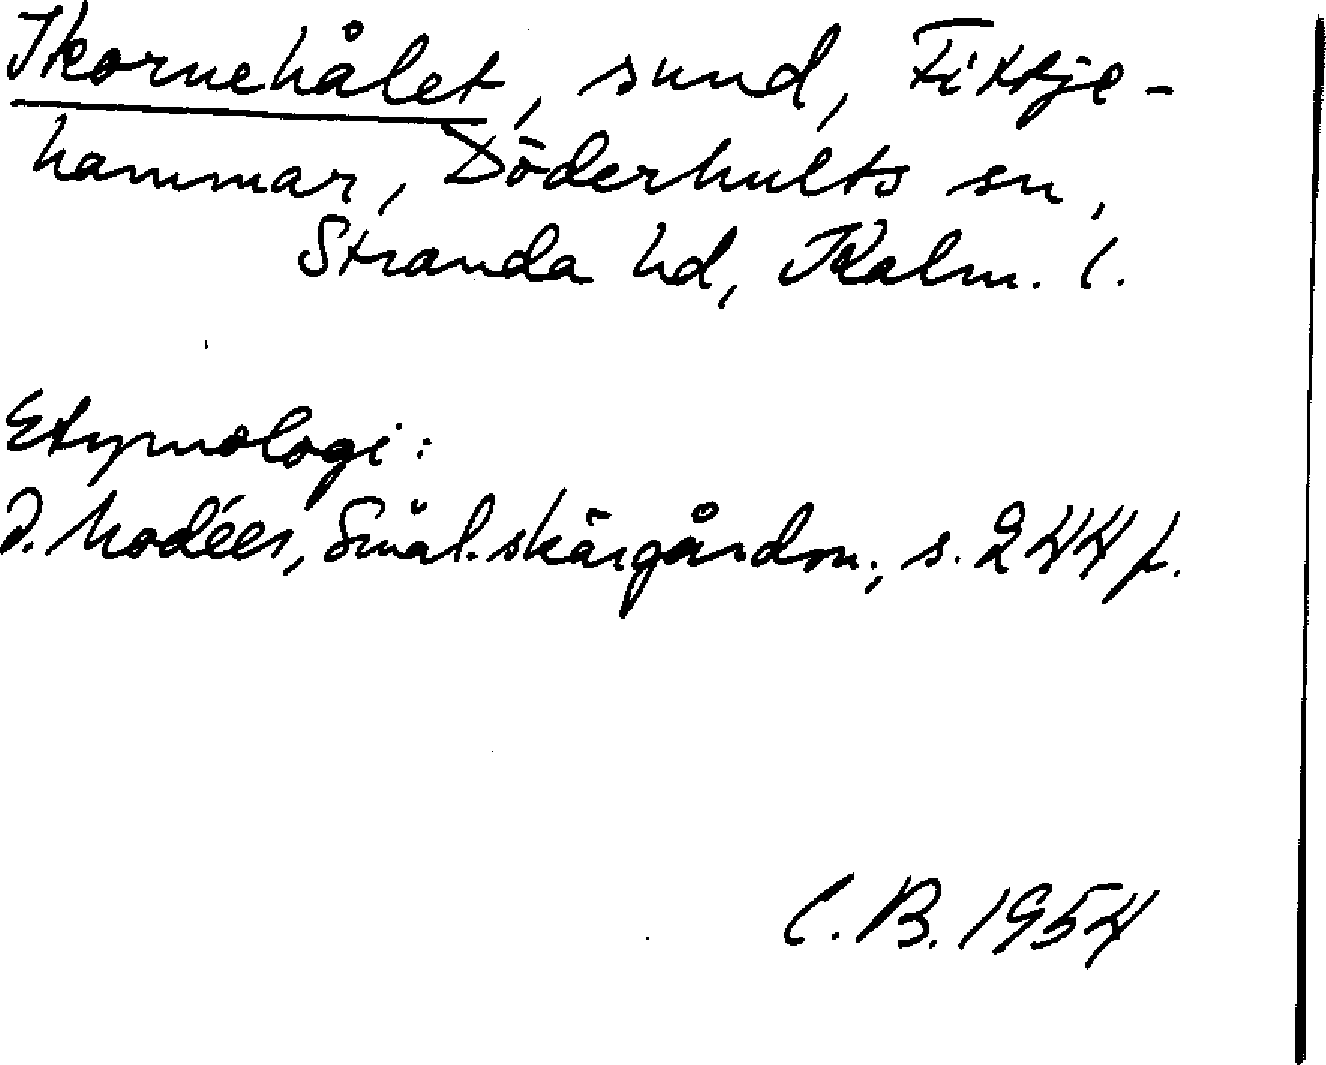 Ikornehålet, sund, Fittje-
hammar, Döderhults sn,
Stranda hd, Kalm. l.
Etymologi:
I. Modéer, Smål. skärgårdsn., s. 244 f.
C. B. 1954